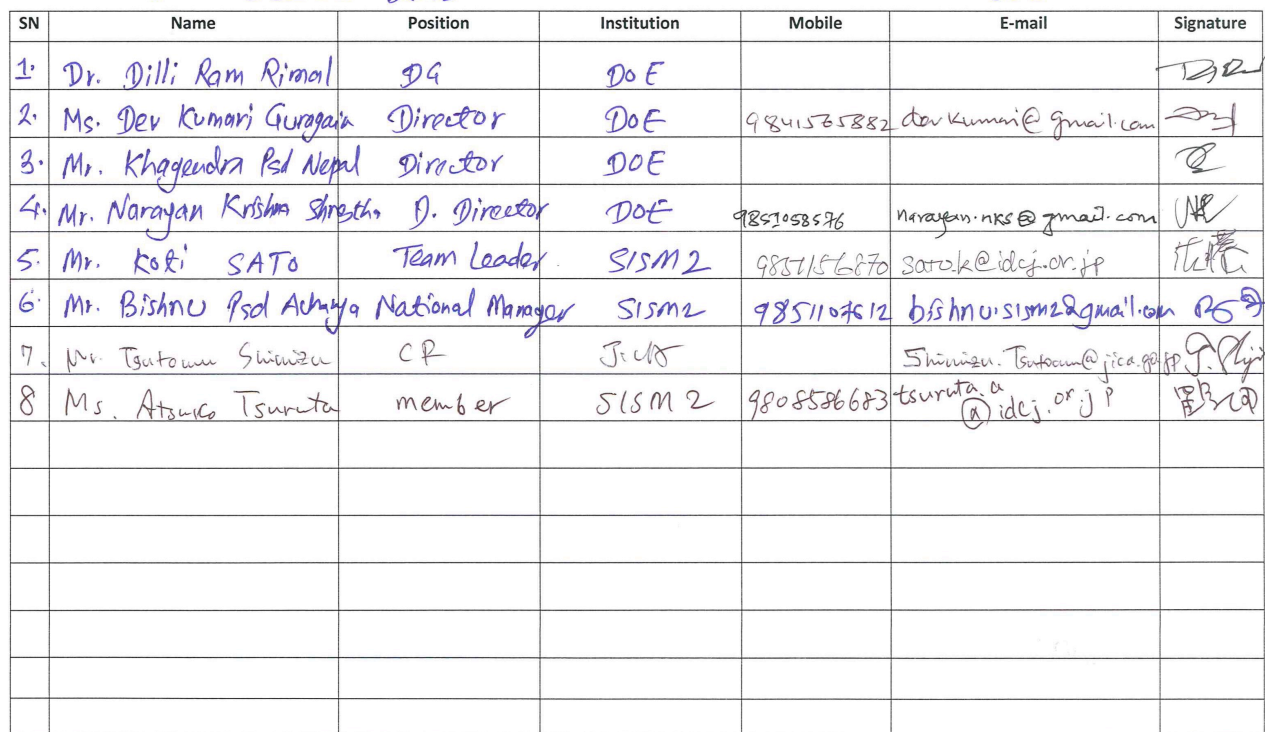 SN Name Position Institution Mobile E-mail Signature
1. Dr. Dilli Ram Rimal DG DoE
2. Ms. Dev Kumari Guragain Director DoE 9841565882 devkumari@gmail.com
3. Mr. Khagendra Psd Nepal Director DOE
4. Mr. Narayan Krishna Shrestha D. Director DOE 9851058576 narayan.nks@gmail.com
5. Mr. Koti SATO Team Leader SISM2 9851156870 sato.k@idcj.or.jp 佐藤
6. Mr. Bishnu Psd Acharya National Manager SISM2 9851107612 bishnu.sism2@gmail.com
7. Mr. Tsutomu Shimizu CR JICA Shimizu.Tsutomu@jica.go.jp
8 Ms. Atsuko Tsuruta member SISM2 9808586683 tsuruta.a
@idcj.or.jp